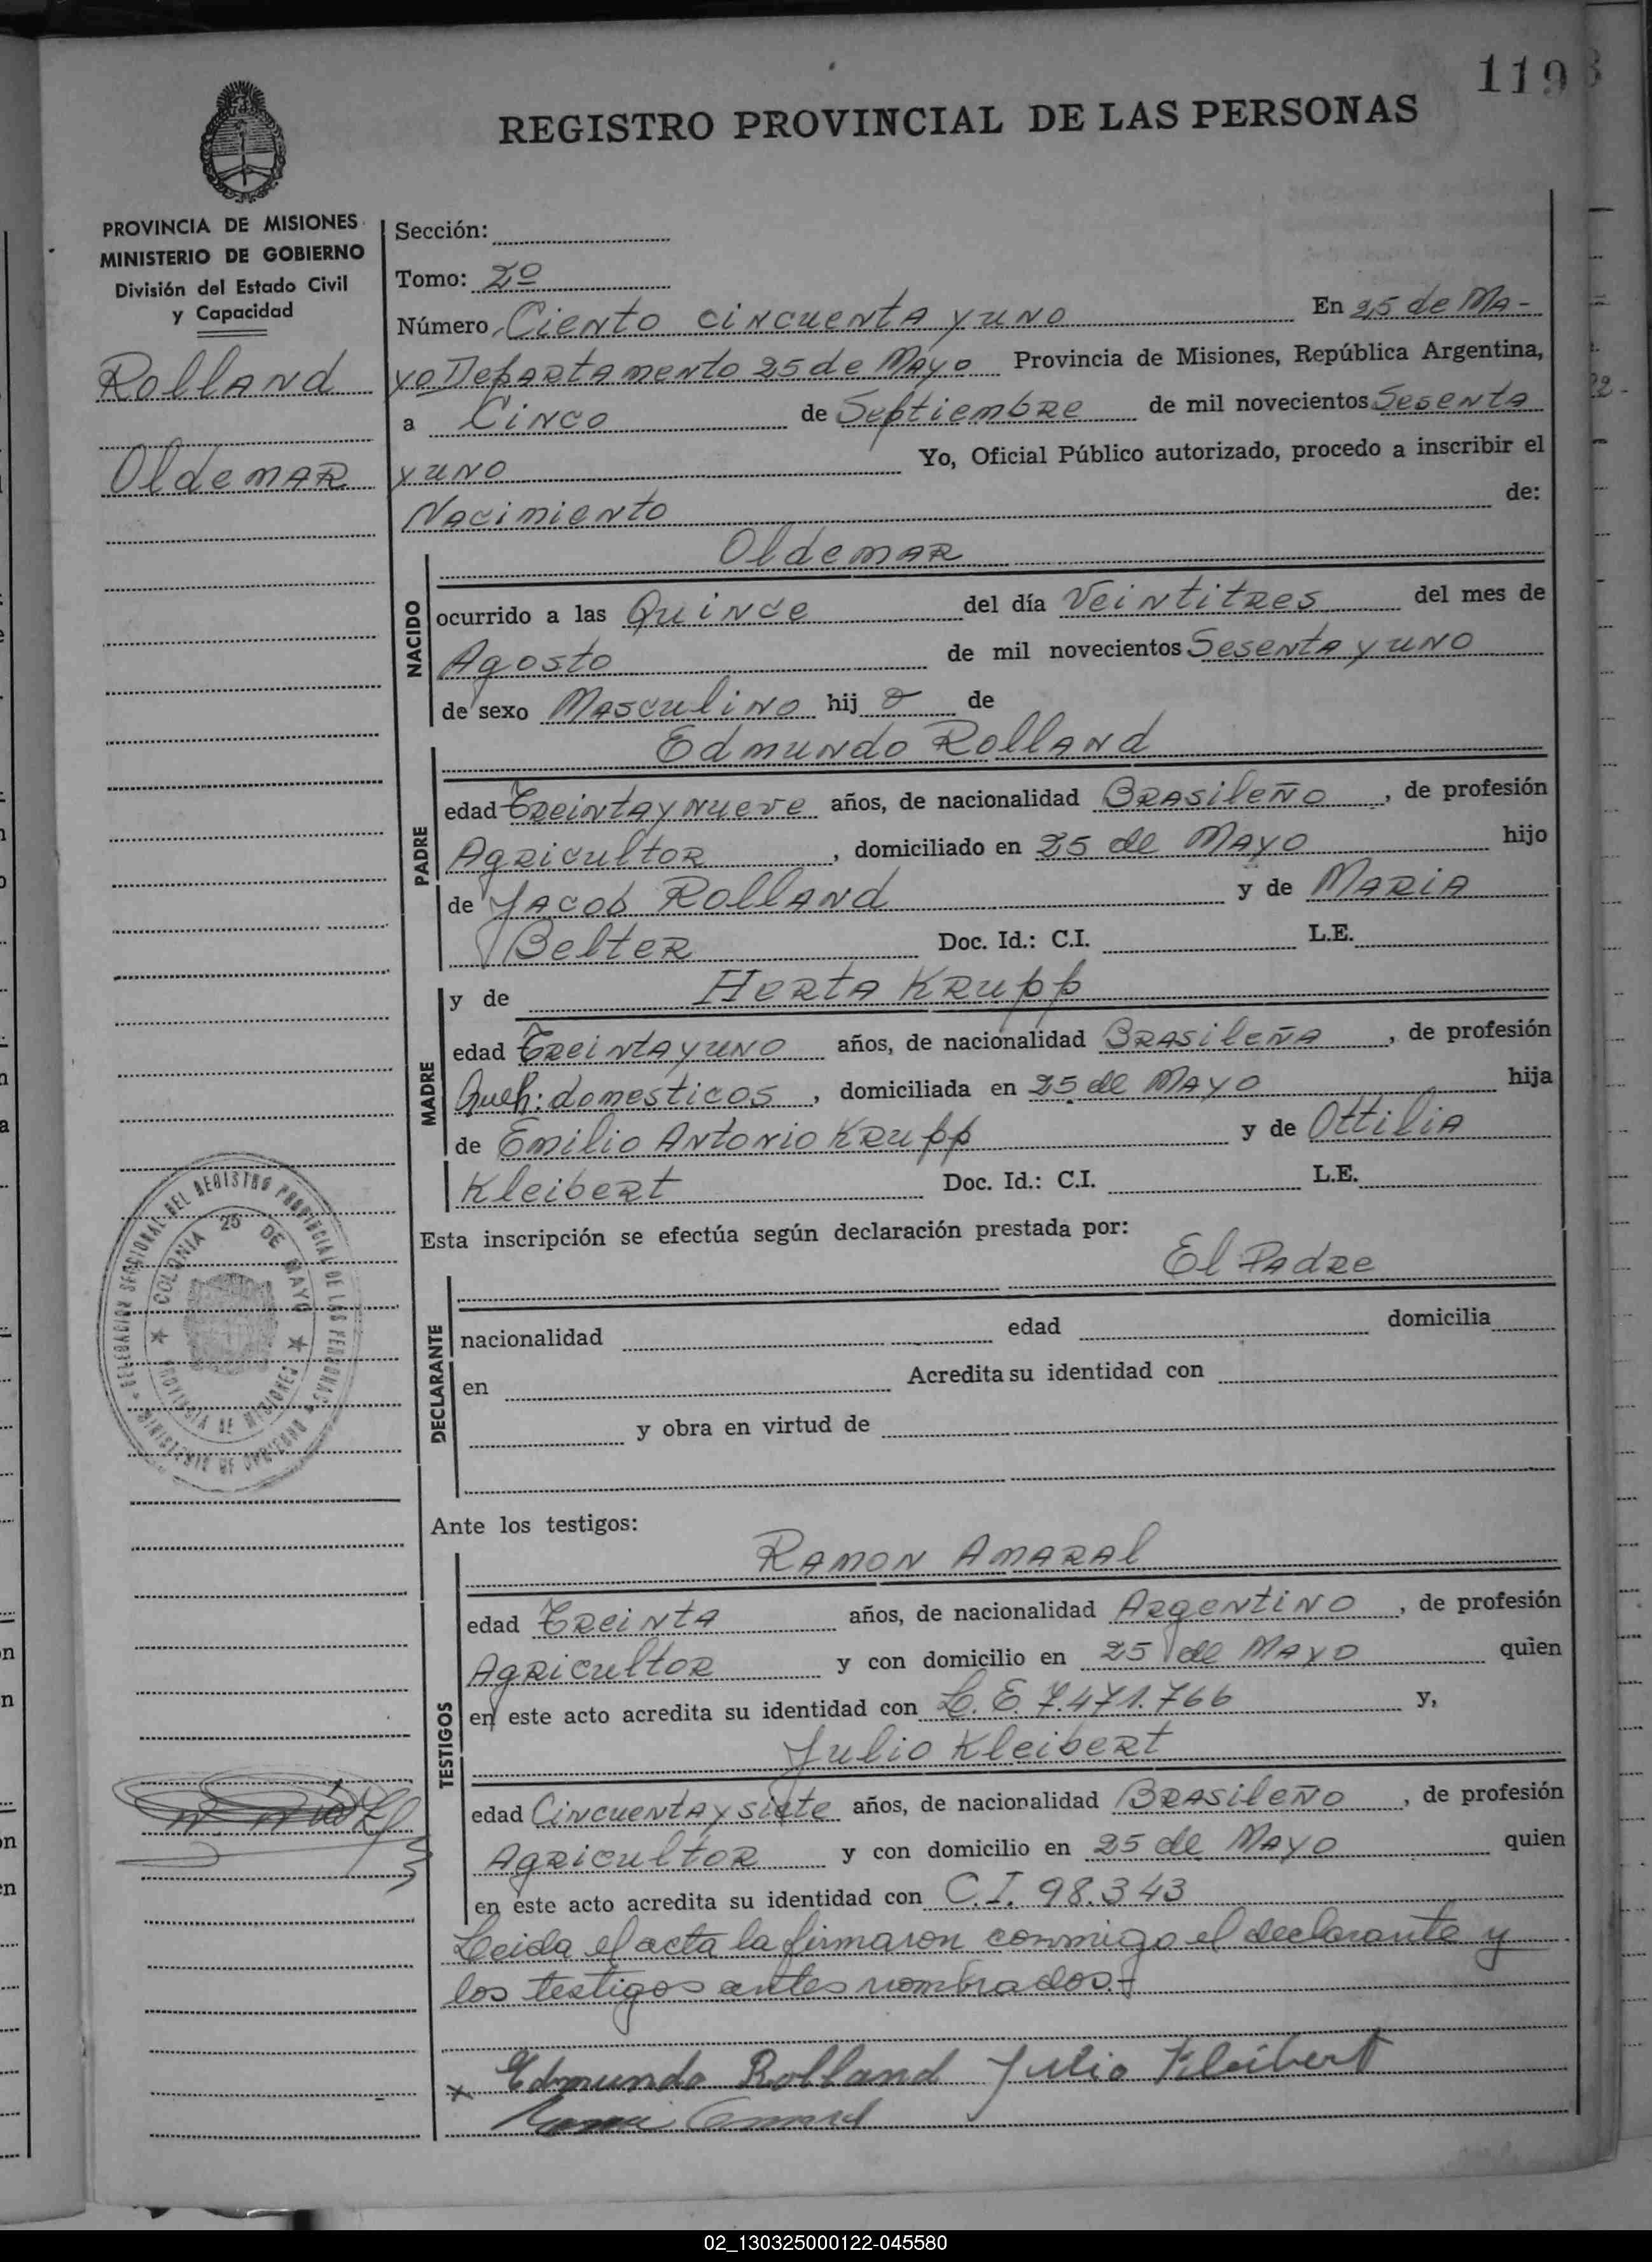 1193
REGISTRO PROVINCIAL DE LAS PERSONAS
PROVINCIA DE MISIONES
MINISTERIO DE GOBIERNO
División del Estado Civil
y Capacidad
Rolland
Oldemar
Sección:
Tomo: 2º
Número Ciento cincuenta y uno En 25 de Ma-
yo Departamento 25 de Mayo Provincia de Misiones, República Argentina,
a Cinco de Septiembre de mil novecientos Sesenta
y uno Yo, Oficial Público autorizado, procedo a inscribir el
Nacimiento de:
NACIDO
Oldemar
ocurrido a las Quince del día Veintitres del mes de
Agosto de mil novecientos Sesenta y uno
de sexo Masculino hij o de
PADRE
Edmundo Rolland
edad Treinta y nueve años, de nacionalidad Brasileño, de profesión
Agricultor, domiciliado en 25 de Mayo hijo
de Jacob Rolland y de Maria
Belter Doc. Id.: C.I. L.E.
MADRE
y de Herta Krupp
edad Treinta y uno años, de nacionalidad Brasileña, de profesión
Queh: domesticos, domiciliada en 25 de Mayo hija
de Emilio Antonio Krupp y de Ottilia
Kleibert Doc. Id.: C.I. L.E.
Esta inscripción se efectúa según declaración prestada por:
El Padre
DECLARANTE
nacionalidad edad domicilia
en Acredita su identidad con
y obra en virtud de
DELEGACION SECCIONAL DEL REGISTRO PROVINCIAL DE LAS PERSONAS
MINISTERIO DE GOBIERNO
COLONIA 25 DE MAYO
PROVINCIA DE MISIONES
Ante los testigos:
TESTIGOS
Ramon Amaral
edad Treinta años, de nacionalidad Argentino, de profesión
Agricultor y con domicilio en 25 de Mayo quien
en este acto acredita su identidad con L.E. 7.471.766 y,
Julio Kleibert
edad Cincuenta y siete años, de nacionalidad Brasileño, de profesión
Agricultor y con domicilio en 25 de Mayo quien
en este acto acredita su identidad con C.I. 98.343
Leida el acta la firmaron conmigo el declarante y
los testigos antes nombrados.-
x Edmundo Rolland Julio Kleibert
02_130325000122-045580